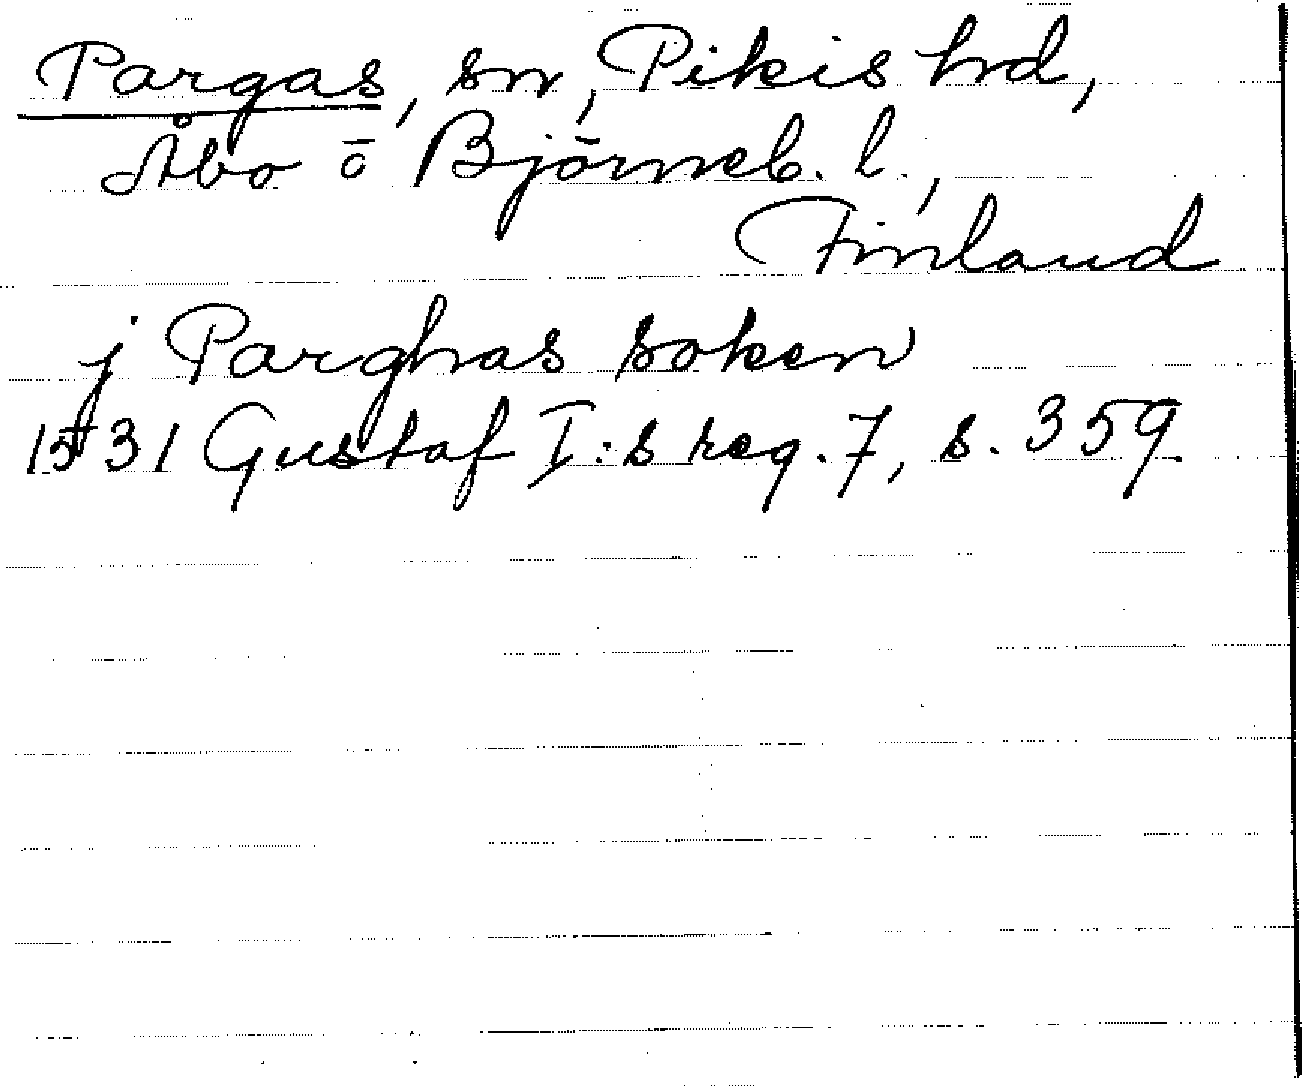 Pargas, sn, Pikis hrd,
Åbo ö Björneb. l.,
Finland
j Parghas soken
1531 Gustaf I:s reg. 7, s. 359.